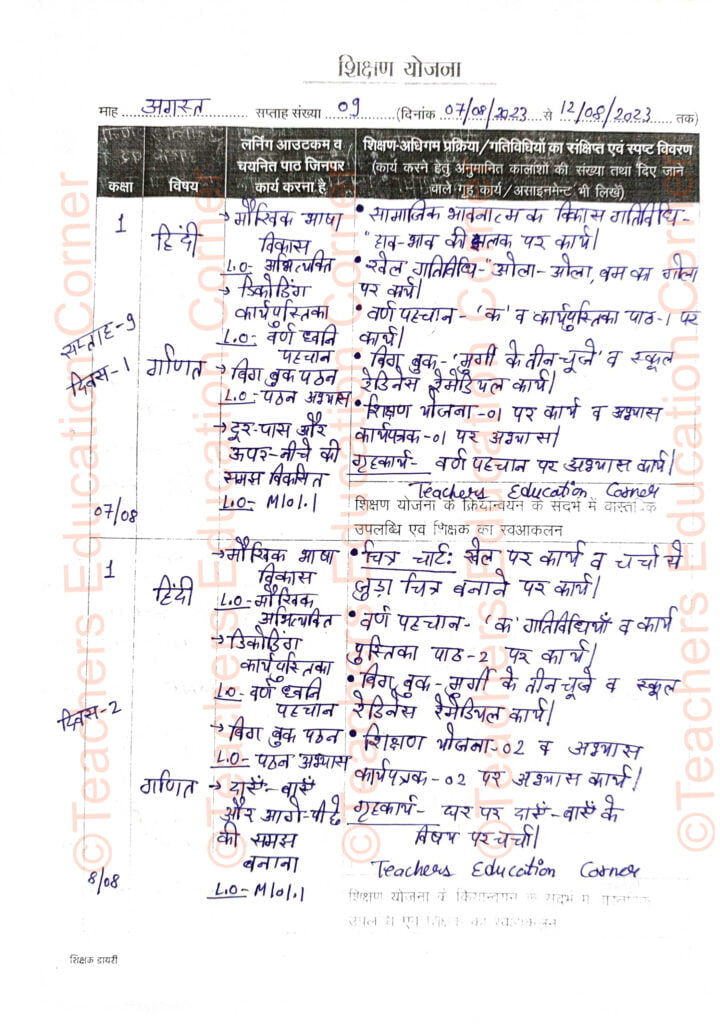 शिक्षण योजना
माह अगस्त सप्ताह संख्या 09 (दिनांक 07/08/2023 से 12/08/2023 तक)
कक्षा
विषय
लर्निंग आउटकम व
चयनित पाठ जिनपर
कार्य करना है
शिक्षण-अधिगम प्रक्रिया/गतिविधियों का संक्षिप्त एवं स्पष्ट विवरण
(कार्य करने हेतु अनुमानित कालांशों की संख्या तथा दिए जाने
वाले गृह कार्य/असाइनमेन्ट भी लिखें)
सप्ताह-9
दिवस-1
07/08
1
हिंदी
गणित
→ मौखिक भाषा
विकास
L.O- अभिव्यक्ति
→ डिकोडिंग
कार्यपुस्तिका
L.O- वर्ण ध्वनि
पहचान
→ बिग बुक पठन
L.O- पठन अभ्यास
→ दूर-पास और
ऊपर-नीचे की
समझ विकसित
L.O- M101.1
• सामाजिक भावनात्मक विकास गतिविधि-
"हाव-भाव की झलक पर कार्य।
• खेल गतिविधि-"ओला-ओला, बम का गोला
पर कार्य।
• वर्ण पहचान- 'क' व कार्यपुस्तिका पाठ-1 पर
कार्य।
• बिग बुक-'मुर्गी के तीन चूजे' व स्कूल
रेडिनेस रेमेडियल कार्य।
• शिक्षण योजना-01 पर कार्य व अभ्यास
कार्यपत्रक-01 पर अभ्यास।
गृहकार्य- वर्ण पहचान पर अभ्यास कार्य।
Teachers Education Corner
शिक्षण योजना के क्रियान्वयन के संदर्भ में वास्तविक
उपलब्धि एवं शिक्षक का स्वआकलन
दिवस-2
8/08
1
हिंदी
गणित
→ मौखिक भाषा
विकास
L.O- मौखिक
अभिव्यक्ति
→ डिकोडिंग
कार्यपुस्तिका
L.O- वर्ण ध्वनि
पहचान
→ बिग बुक पठन
L.O- पठन अभ्यास
→ दाएँ-बाएँ
और आगे-पीछे
की समझ
बनाना
L.O- M101.1
• चित्र चार्ट: खेल पर कार्य व चर्चा से
जुड़ा चित्र बनाने पर कार्य।
• वर्ण पहचान- 'क' गतिविधियाँ व कार्य
पुस्तिका पाठ-2 पर कार्य।
• बिग बुक-मुर्गी के तीन चूजे व स्कूल
रेडिनेस रेमेडियल कार्य।
• शिक्षण योजना-02 व अभ्यास
कार्यपत्रक-02 पर अभ्यास कार्य।
गृहकार्य- घर पर दाएँ-बाएँ के
विषय पर चर्चा।
Teachers Education Corner
शिक्षण योजना के क्रियान्वयन के संदर्भ में वास्तविक
उपलब्धि एवं शिक्षक का स्वआकलन
शिक्षक डायरी
©Teachers Education Corner
©Teachers Education Corner
©Teachers Education Corner
©Teachers Education Corner
©Teachers Education Corner